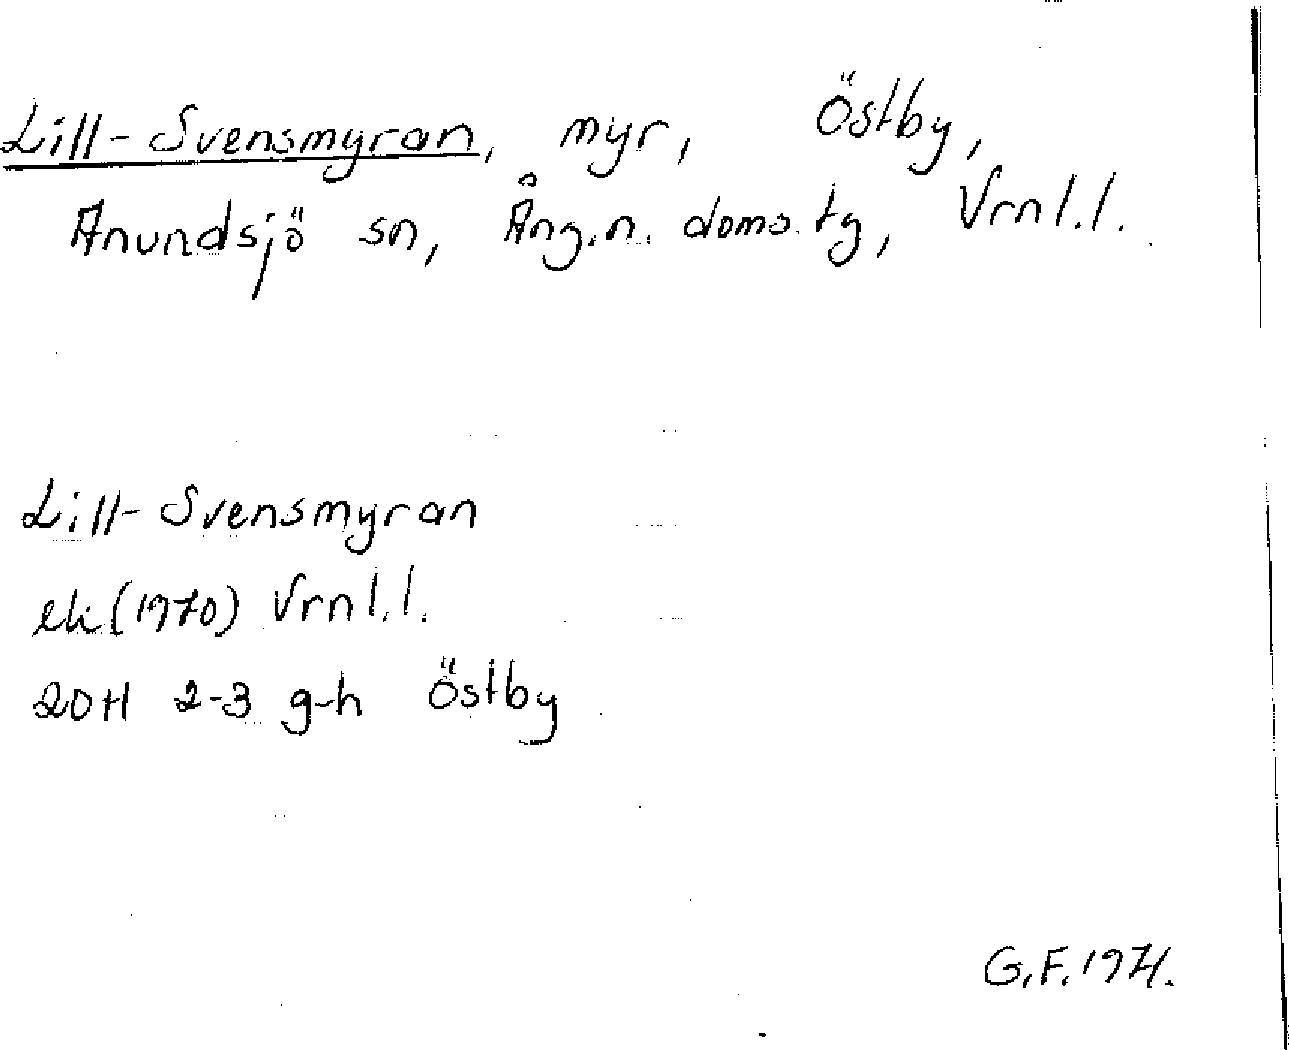 Lill-Svensmyran, myr, Östby,
Anundsjö sn, Ång.n. doms.tg, Vrnl.l.
Lill-Svensmyran
ek (1970) Vrnl.l.
20H 2-3 g-h Östby
G.F. 1971.